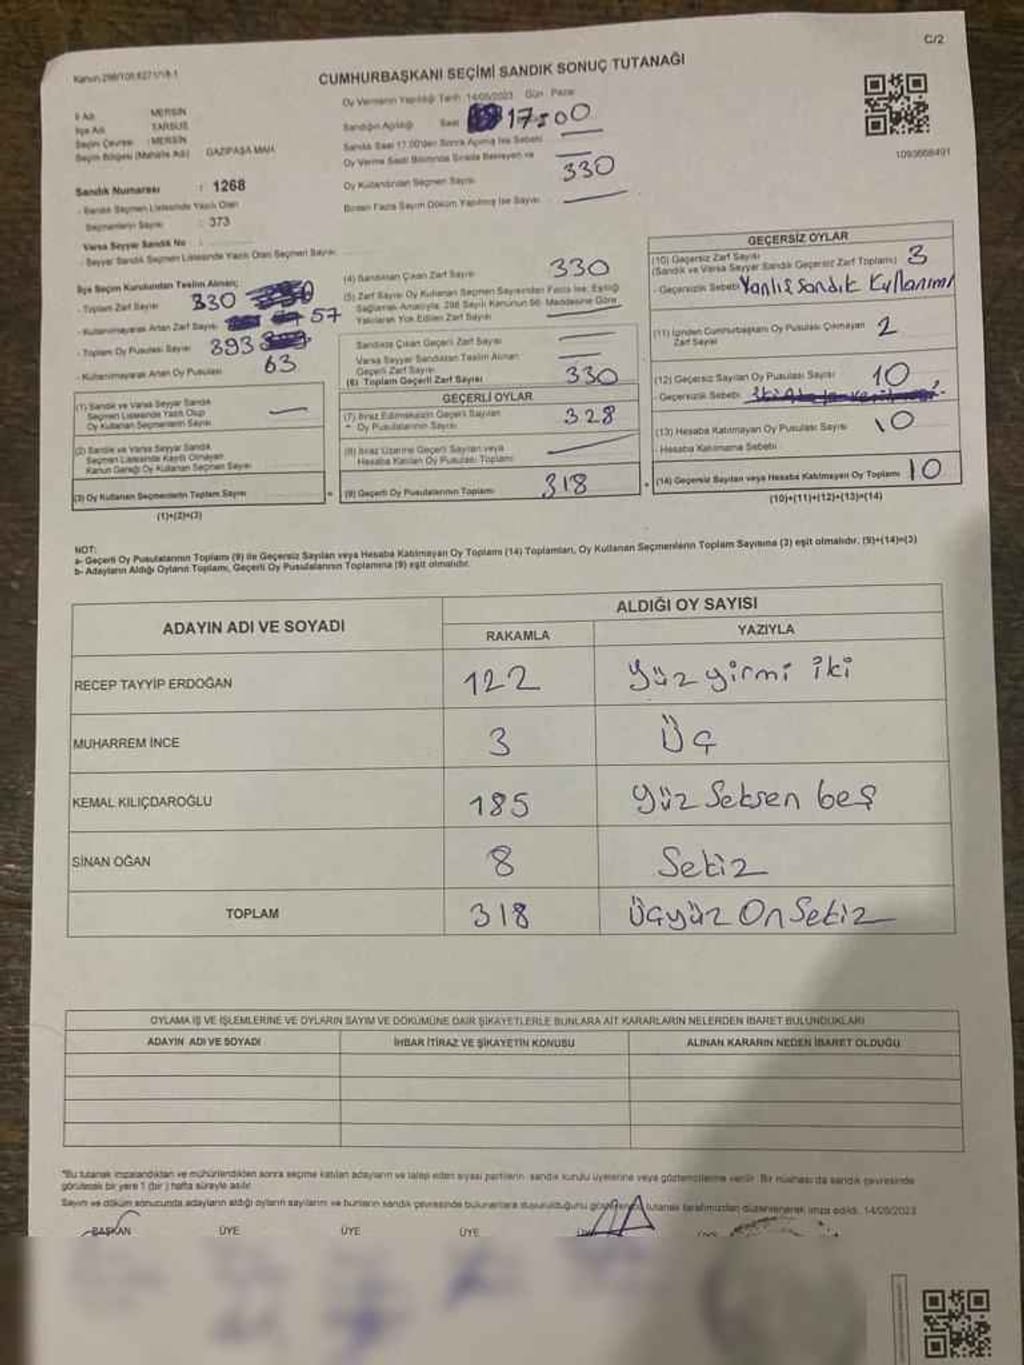 C/2
CUMHURBAŞKANI SEÇİMİ SANDIK SONUÇ TUTANAĞI
İl Adı MERSİN
İlçe Adı TARSUS
Seçim Çevresi : MERSİN
Seçim Bölgesi (Mahalle Adı) GAZİPAŞA MAH.
Oy Vermenin Yapıldığı Tarih 14/05/2023 Gün : Pazar
Sandığın Açıldığı Saat 17:00
Sandık Saat 17.00'den Sonra Açılmış İse Sebebi
Oy Verme Saati Bitiminde Sırada Bekleyen ve
Oy Kullandırılan Seçmen Sayısı 330
Birden Fazla Sayım Döküm Yapılmış İse Sayısı
1093668491
Sandık Numarası : 1268
- Sandık Seçmen Listesinde Yazılı Olan
Seçmenlerin Sayısı : 373
Varsa Seyyar Sandık No :
- Seyyar Sandık Seçmen Listesinde Yazılı Olan Seçmen Sayısı
İlçe Seçim Kurulundan Teslim Alınan;
- Toplam Zarf Sayısı
- Kullanılmayarak Artan Zarf Sayısı 57
- Toplam Oy Pusulası Sayısı 393
- Kullanılmayarak Artan Oy Pusulası 63
(1) Sandık ve Varsa Seyyar Sandık
Seçmen Listesinde Yazılı Olup
Oy Kullanan Seçmenlerin Sayısı
(2) Sandık ve Varsa Seyyar Sandık
Seçmen Listesinde Kayıtlı Olmayan
Kanun Gereği Oy Kullanan Seçmen Sayısı
(3) Oy Kullanan Seçmenlerin Toplam Sayısı =
(1)+(2)=(3)
(4) Sandıktan Çıkan Zarf Sayısı 330
(5) Zarf Sayısı Oy Kullanan Seçmen Sayısından Fazla İse, Eşitliği
Sağlamak Amacıyla, 298 Sayılı Kanunun 98. Maddesine Göre
Yakılarak Yok Edilen Zarf Sayısı
Sandıkta Çıkan Geçerli Zarf Sayısı
Varsa Seyyar Sandıktan Teslim Alınan
Geçerli Zarf Sayısı
(6) Toplam Geçerli Zarf Sayısı 330
GEÇERLİ OYLAR
(7) İtiraz Edilmeksizin Geçerli Sayılan
Oy Pusulalarının Sayısı 328
(8) İtiraz Üzerine Geçerli Sayılan veya
Hesaba Katılan Oy Pusulası Toplamı
(9) Geçerli Oy Pusulalarının Toplamı 318 +
GEÇERSİZ OYLAR
(10) Geçersiz Zarf Sayısı 3
(Sandık ve Varsa Seyyar Sandık Geçersiz Zarf Toplamı)
- Geçersizlik Sebebi Yanlış sandık Kullanımı
(11) İçinden Cumhurbaşkanı Oy Pusulası Çıkmayan
Zarf Sayısı 2
(12) Geçersiz Sayılan Oy Pusulası Sayısı 10
- Geçersizlik Sebebi
(13) Hesaba Katılmayan Oy Pusulası Sayısı 10
- Hesaba Katılmama Sebebi
(14) Geçersiz Sayılan veya Hesaba Katılmayan Oy Toplamı 10
(10)+(11)+(12)+(13)=(14)
NOT:
a- Geçerli Oy Pusulalarının Toplamı (9) ile Geçersiz Sayılan veya Hesaba Katılmayan Oy Toplamı (14) Toplamları, Oy Kullanan Seçmenlerin Toplam Sayısına (3) eşit olmalıdır. (9)+(14)=(3)
b- Adayların Aldığı Oyların Toplamı, Geçerli Oy Pusulalarının Toplamına (9) eşit olmalıdır.
ADAYIN ADI VE SOYADI ALDIĞI OY SAYISI
RAKAMLA YAZIYLA
RECEP TAYYİP ERDOĞAN 122 Yüz yirmi iki
MUHARREM İNCE 3 Üç
KEMAL KILIÇDAROĞLU 185 Yüz Seksen beş
SİNAN OĞAN 8 Sekiz
TOPLAM 318 Üçyüz On Sekiz
OYLAMA İŞ VE İŞLEMLERİNE VE OYLARIN SAYIM VE DÖKÜMÜNE DAİR ŞİKAYETLERLE BUNLARA AİT KARARLARIN NELERDEN İBARET BULUNDUKLARI
ADAYIN ADI VE SOYADI İHBAR İTİRAZ VE ŞİKAYETİN KONUSU ALINAN KARARIN NEDEN İBARET OLDUĞU
*Bu tutanak imzalandıktan ve mühürlendikten sonra seçime katılan adayların ve talep eden siyasi partilerin sandık kurulu üyelerine veya gözlemcilerine verilir. Bir nüshası da sandık çevresinde
görülecek bir yere 1 (bir) hafta süreyle asılır.
Sayım ve döküm sonucunda adayların aldığı oyların sayılarını ve bunların sandık çevresinde bulunanlara duyurulduğunu tutanak tarafımızdan düzenlenerek imza edildi. 14/05/2023
BAŞKAN ÜYE ÜYE ÜYE